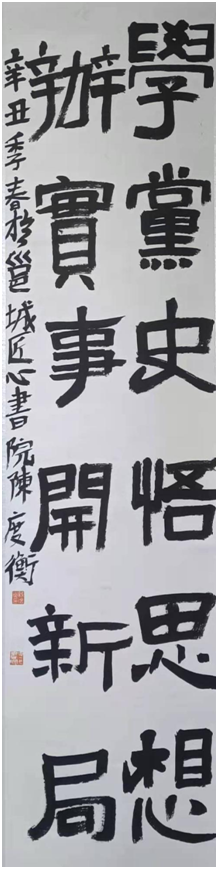 學黨史悟思想
辦實事開新局
辛丑季春於邕城匠心書院陳度衡